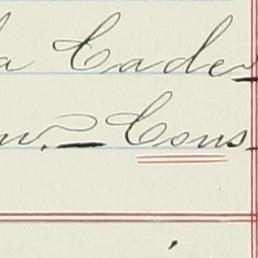 a Cade
w. — Cons